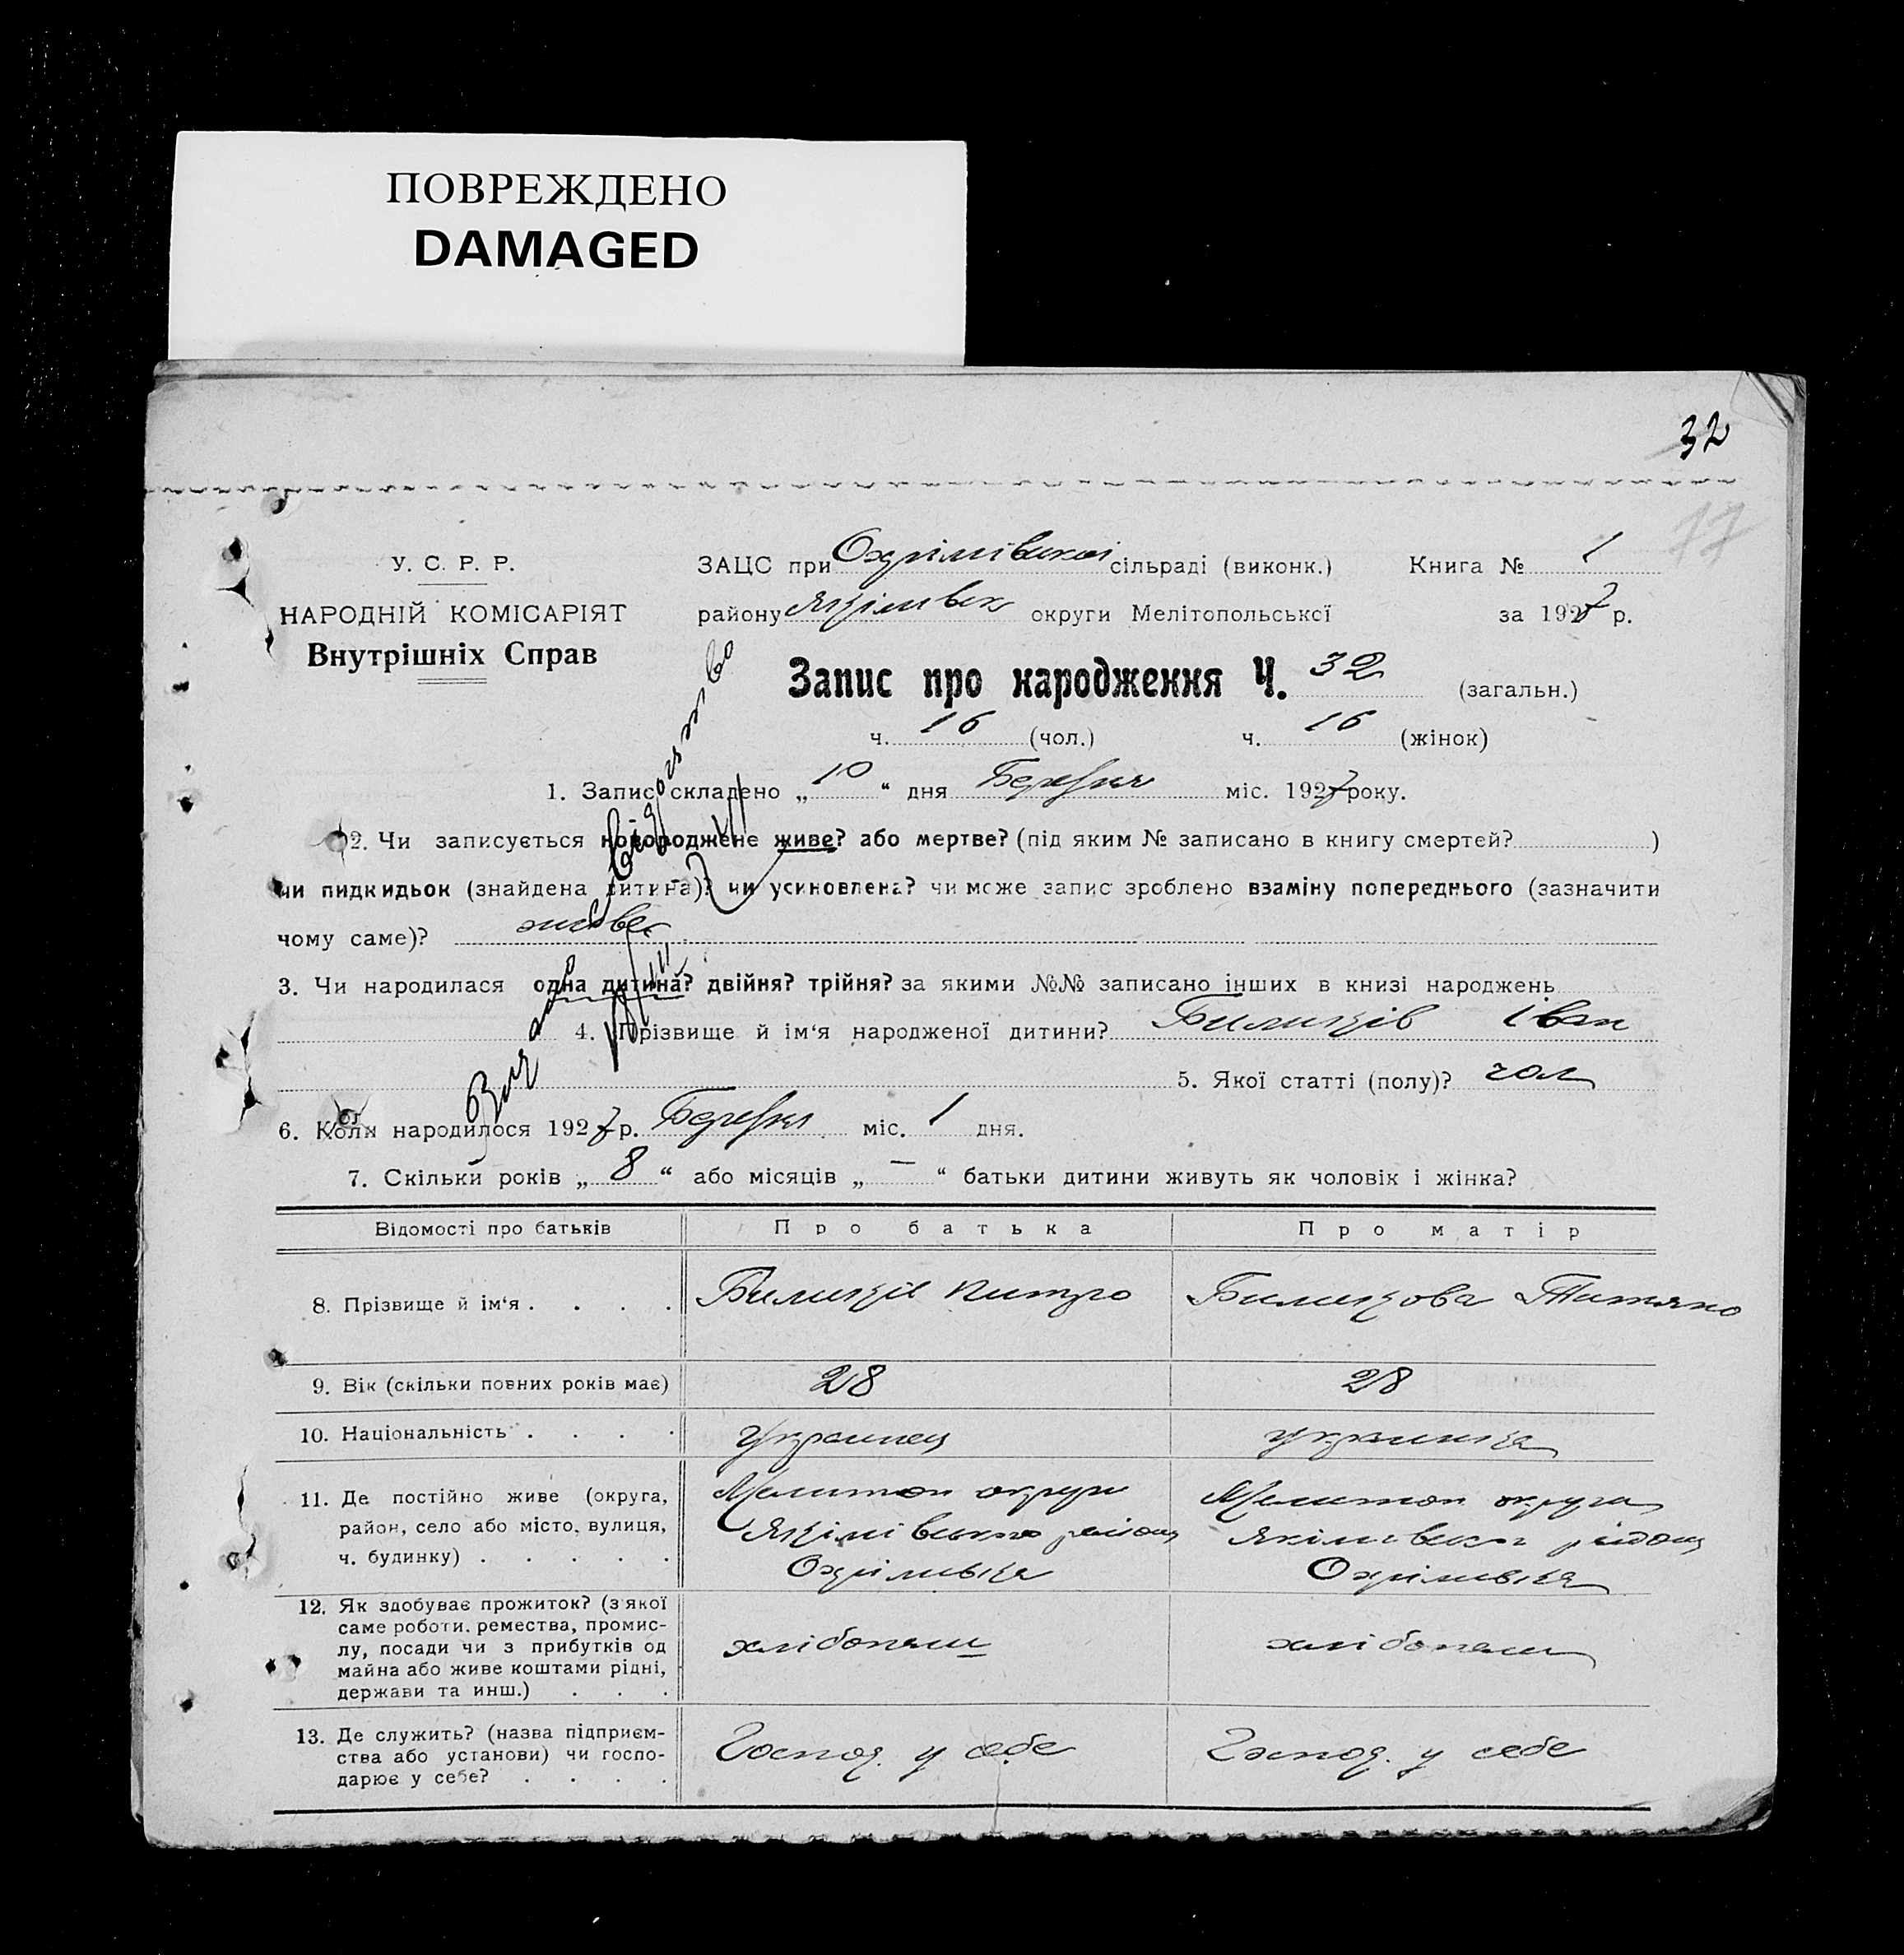 ПОВРЕЖДЕНО
DAMAGED
32
17
У. С. Р. Р.
НАРОДНІЙ КОМІСАРІЯТ
Внутрішніх Справ
ЗАЦС при Охрімівській сільраді (виконк.) Книга № 1
району Якімівск округи Мелітопольської за 1927 р.
Запис про народження Ч. 32 (загальн.)
ч. 16 (чол.) ч. 16 (жінок)
1. Запис складено „ 10 “ дня Березня міс. 1927 року.
2. Чи записується новороджене живе? або мертве? (під яким № записано в книгу смертей? )
чи пидкидьок (знайдена дитина)? чи усиновлена? чи може запис зроблено взаміну попереднього (зазначити
чому саме)? живе
3. Чи народилася одна дитина? двійня? трійня? за якими №№ записано інших в книзі народжень
4. Прізвище й ім‘я народженої дитини? Биликів Іван
5. Якої статті (полу)? чол
6. Коли народилося 1927 р. Березня міс. 1 дня.
7. Скільки років „ 8 “ або місяців „ — “ батьки дитини живуть як чоловік і жінка?
Відомості про батьків Про батька Про матір
8. Прізвище й ім‘я . . . . Биликів Питро Биликова Титяно
9. Вік (скільки повних років має) 28 28
10. Національність . . . . Украинец украинка
11. Де постійно живе (округа,
район, село або місто, вулиця,
ч. будинку) . . . . .
Мелитоп округи
Якімівського району
Охримівка
Мелитоп округа
Якімівског району
Охрімівка
12. Як здобуває прожиток? (з якої
саме роботи, ремества, промис-
лу, посади чи з прибутків од
майна або живе коштами рідні,
держави та инш.) . . .
хлібопаш
хлібопаш
13. Де служить? (назва підприєм-
ства або установи) чи госпо-
дарює у себе? . . . .
Господ. у себе
Господ. у себе